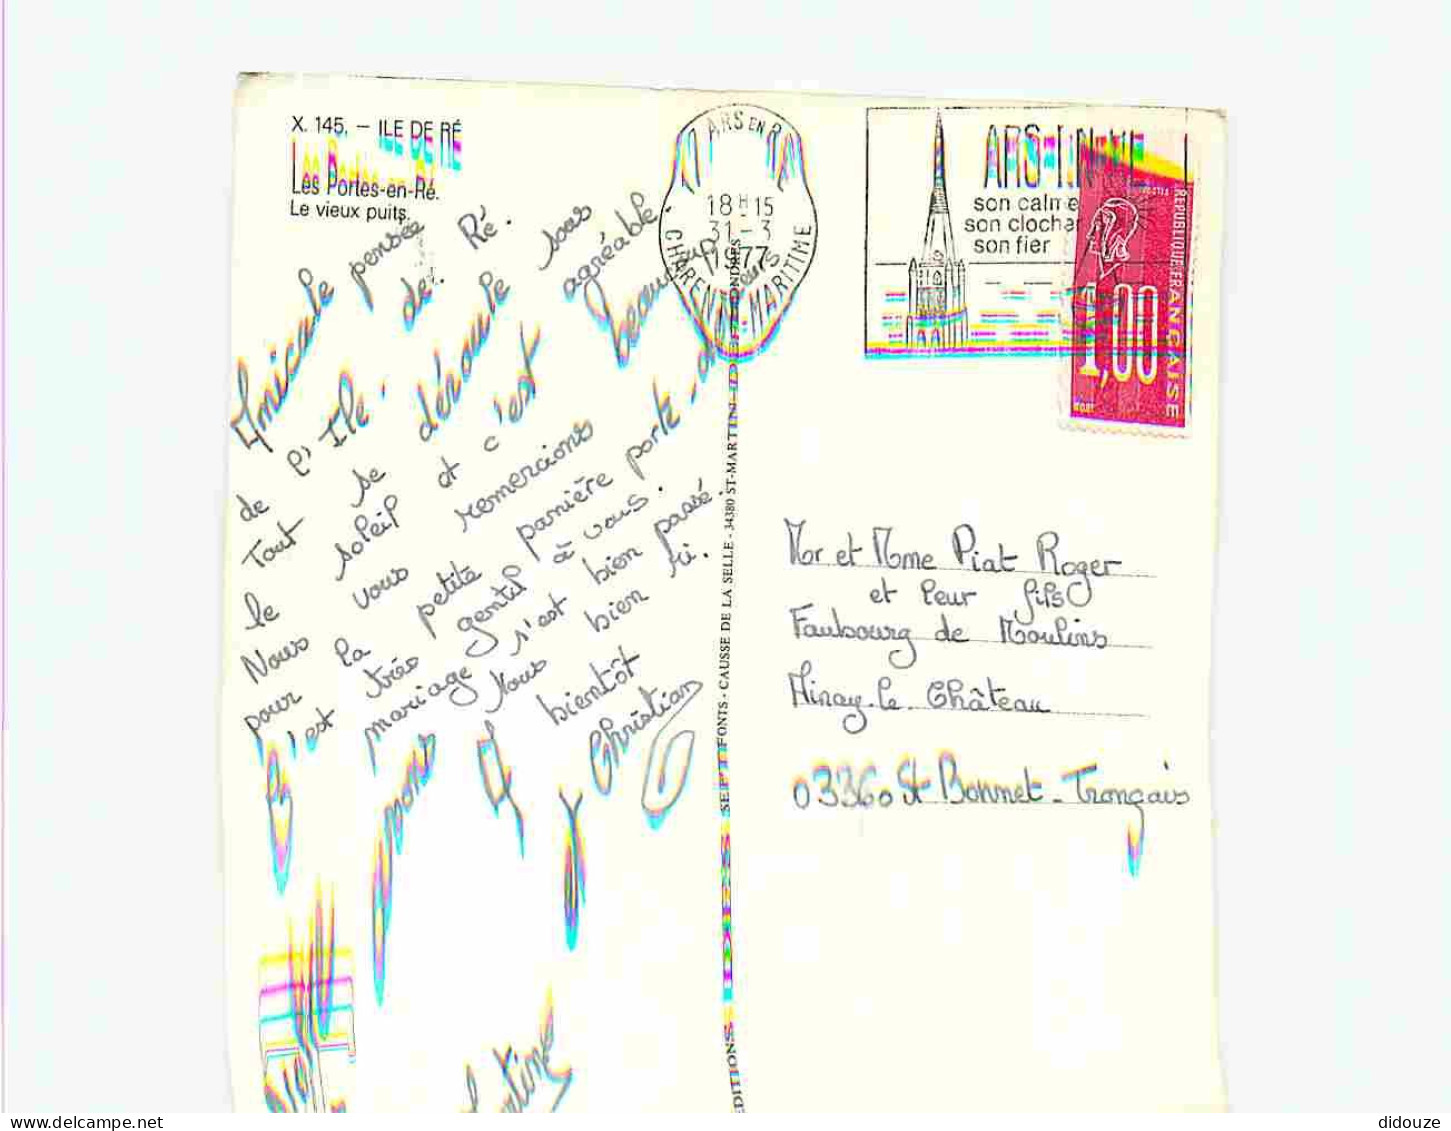 X. 145. – ILE DE RÉ
Les Portes-en-Ré.
Le vieux puits.
Amicale pensée
de l'Ile de Ré.
Tout se déroule sous
le soleil et c'est agréable
Nous vous remercions beaucoup
pour la petite panière porte-
c'est très gentil à vous.
mariage s'est bien passé.
Nous bien ri.
A bientôt
Christian
17 ARS EN RÉ
18 H 15
31 - 3
1977
CHARENTE-MARITIME
ARS-EN-RÉ
son calme
son clocher
son fier
POSTES
REPUBLIQUE FRANÇAISE
1,00
Mor et Mme Piat Roger
et leur fils
Faubourg de Moulins
Ainay-le-Château
03360 St Bonnet-Tronçais
EDITIONS
SEPT FONTS - CAUSSE DE LA SELLE - 34380 ST-MARTIN-DE-LONDRES